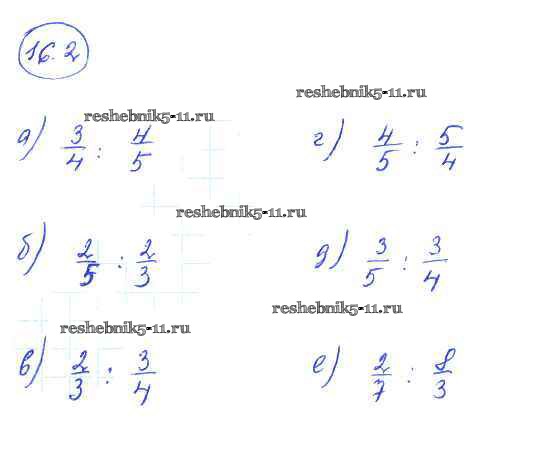 16.2
reshebnik5-11.ru
reshebnik5-11.ru
а) 3/4 : 4/5
г) 4/5 : 5/4
reshebnik5-11.ru
б) 2/5 : 2/3
д) 3/5 : 3/4
reshebnik5-11.ru
reshebnik5-11.ru
в) 2/3 : 3/4
е) 2/7 : 8/3